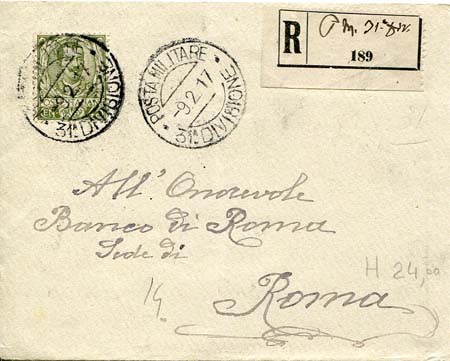 R
P.M. 31ª Div.
189
POSTA MILITARE
-9.2.17
31ª DIVISIONE
-9.2
31ª DIVISIONE
All' Onorevole
Banco di Roma
Sede di
Roma
H 24,00